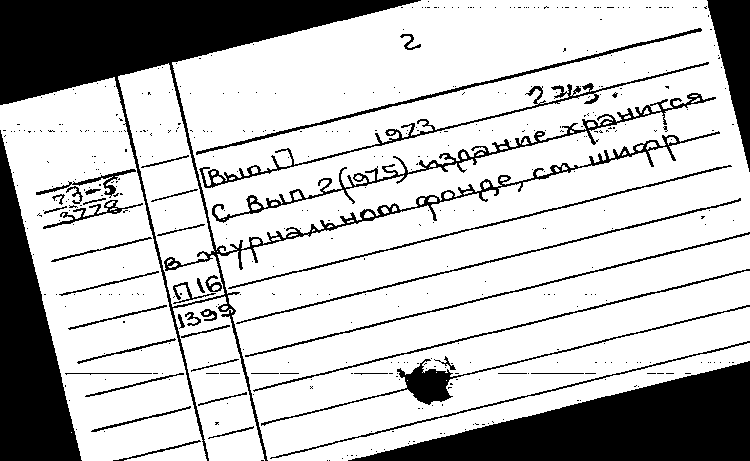 2
[Вып. 1] 1973 2 экз.
73-5
3778
С вып. 2 (1975) издание хранится
в журнальном фонде, см. шифр
П 16
1399